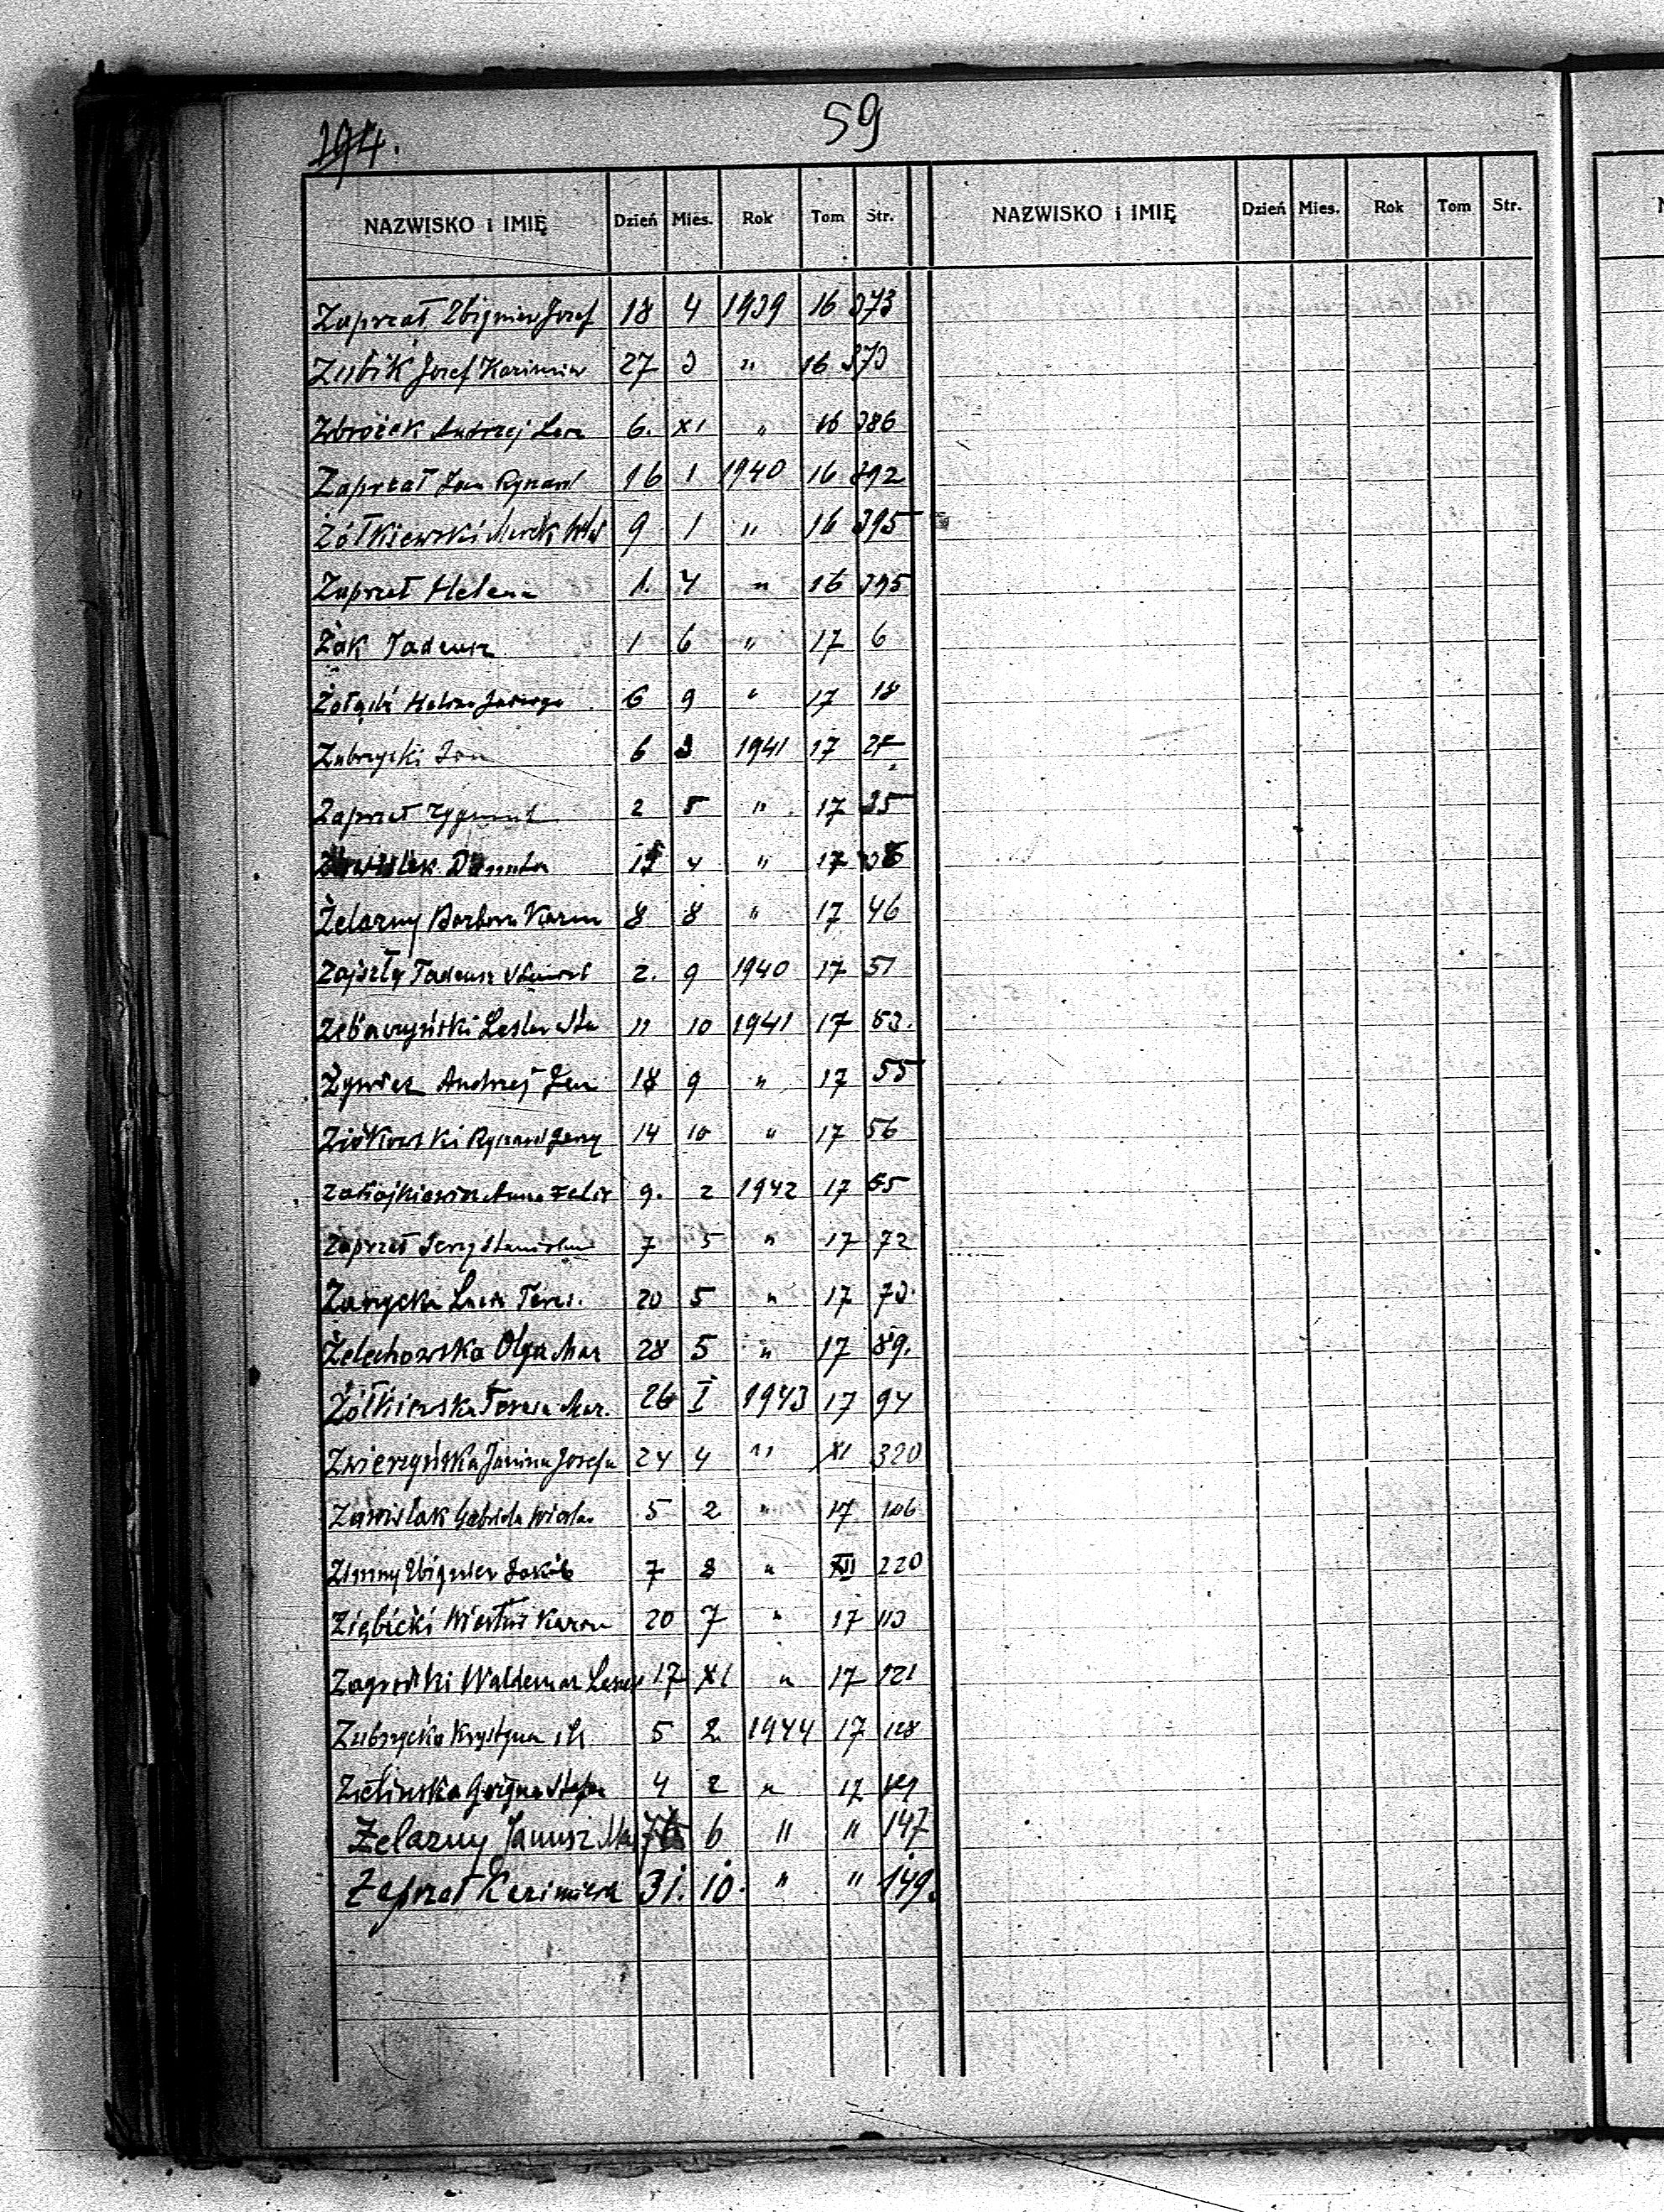 194.
59
NAZWISKO i IMIĘ Dzień Mies. Rok Tom Str. NAZWISKO i IMIĘ Dzień Mies. Rok Tom Str.
Zaprzał Zbigniew Józef 18 4 1939 16 373
Zubik Józef Kazimierz 27 3 " 16 373
Zbrożek Andrzej 6. XI " 16 386
Zaprzał Jan Ryszard 16 1 1940 16 392
Żółkiewski Marek 9 1 " 16 395
Zaprzał Helena 1. 4 " 16 395
Żak Tadeusz 1 6 " 17 6
Helena Jadwiga 6 9 " 17 18
Zubrzycki Jan 6 3 1941 17
Zaprzał Zygmunt 2 5 " 17 35
Danuta 4 " 17
Żelazny Barbara 8 8 " 17 46
Zajszły Tadeusz 2. 9 1940 17 51
Zębaczyński 11 10 1941 17 53.
Żywiec Andrzej Jan 18 9 " 17 55
Ziółkowski Ryszard Jerzy 14 10 " 17 56
Anna Felic 9. 2 1942 17 65
Zaprzał Jerzy Stanisław 7 5 " 17 72
Zarzycka 20 5 " 17 73.
Żelechowska Olga Mar 28 5 " 17 89.
Żółkiewska Teresa Mar. 26 I 1943 17 94
Zwierzyńska Janina Józefa 24 4 " XI 320
Zawiślak 5 2 " 17 106
Zimny Zbigniew Jakób 7 8 " XII 220
Ziębicki 20 7 " 17 113
Zagrodzki Waldemar 17 XI " 17 121
Zubrzycka Krystyna 5 2 1944 17 128
Zielińska 4 2 " 17
Żelazny Janusz 6 " " 147
Zaprzał Kazimiera 31. 10. " " 149.